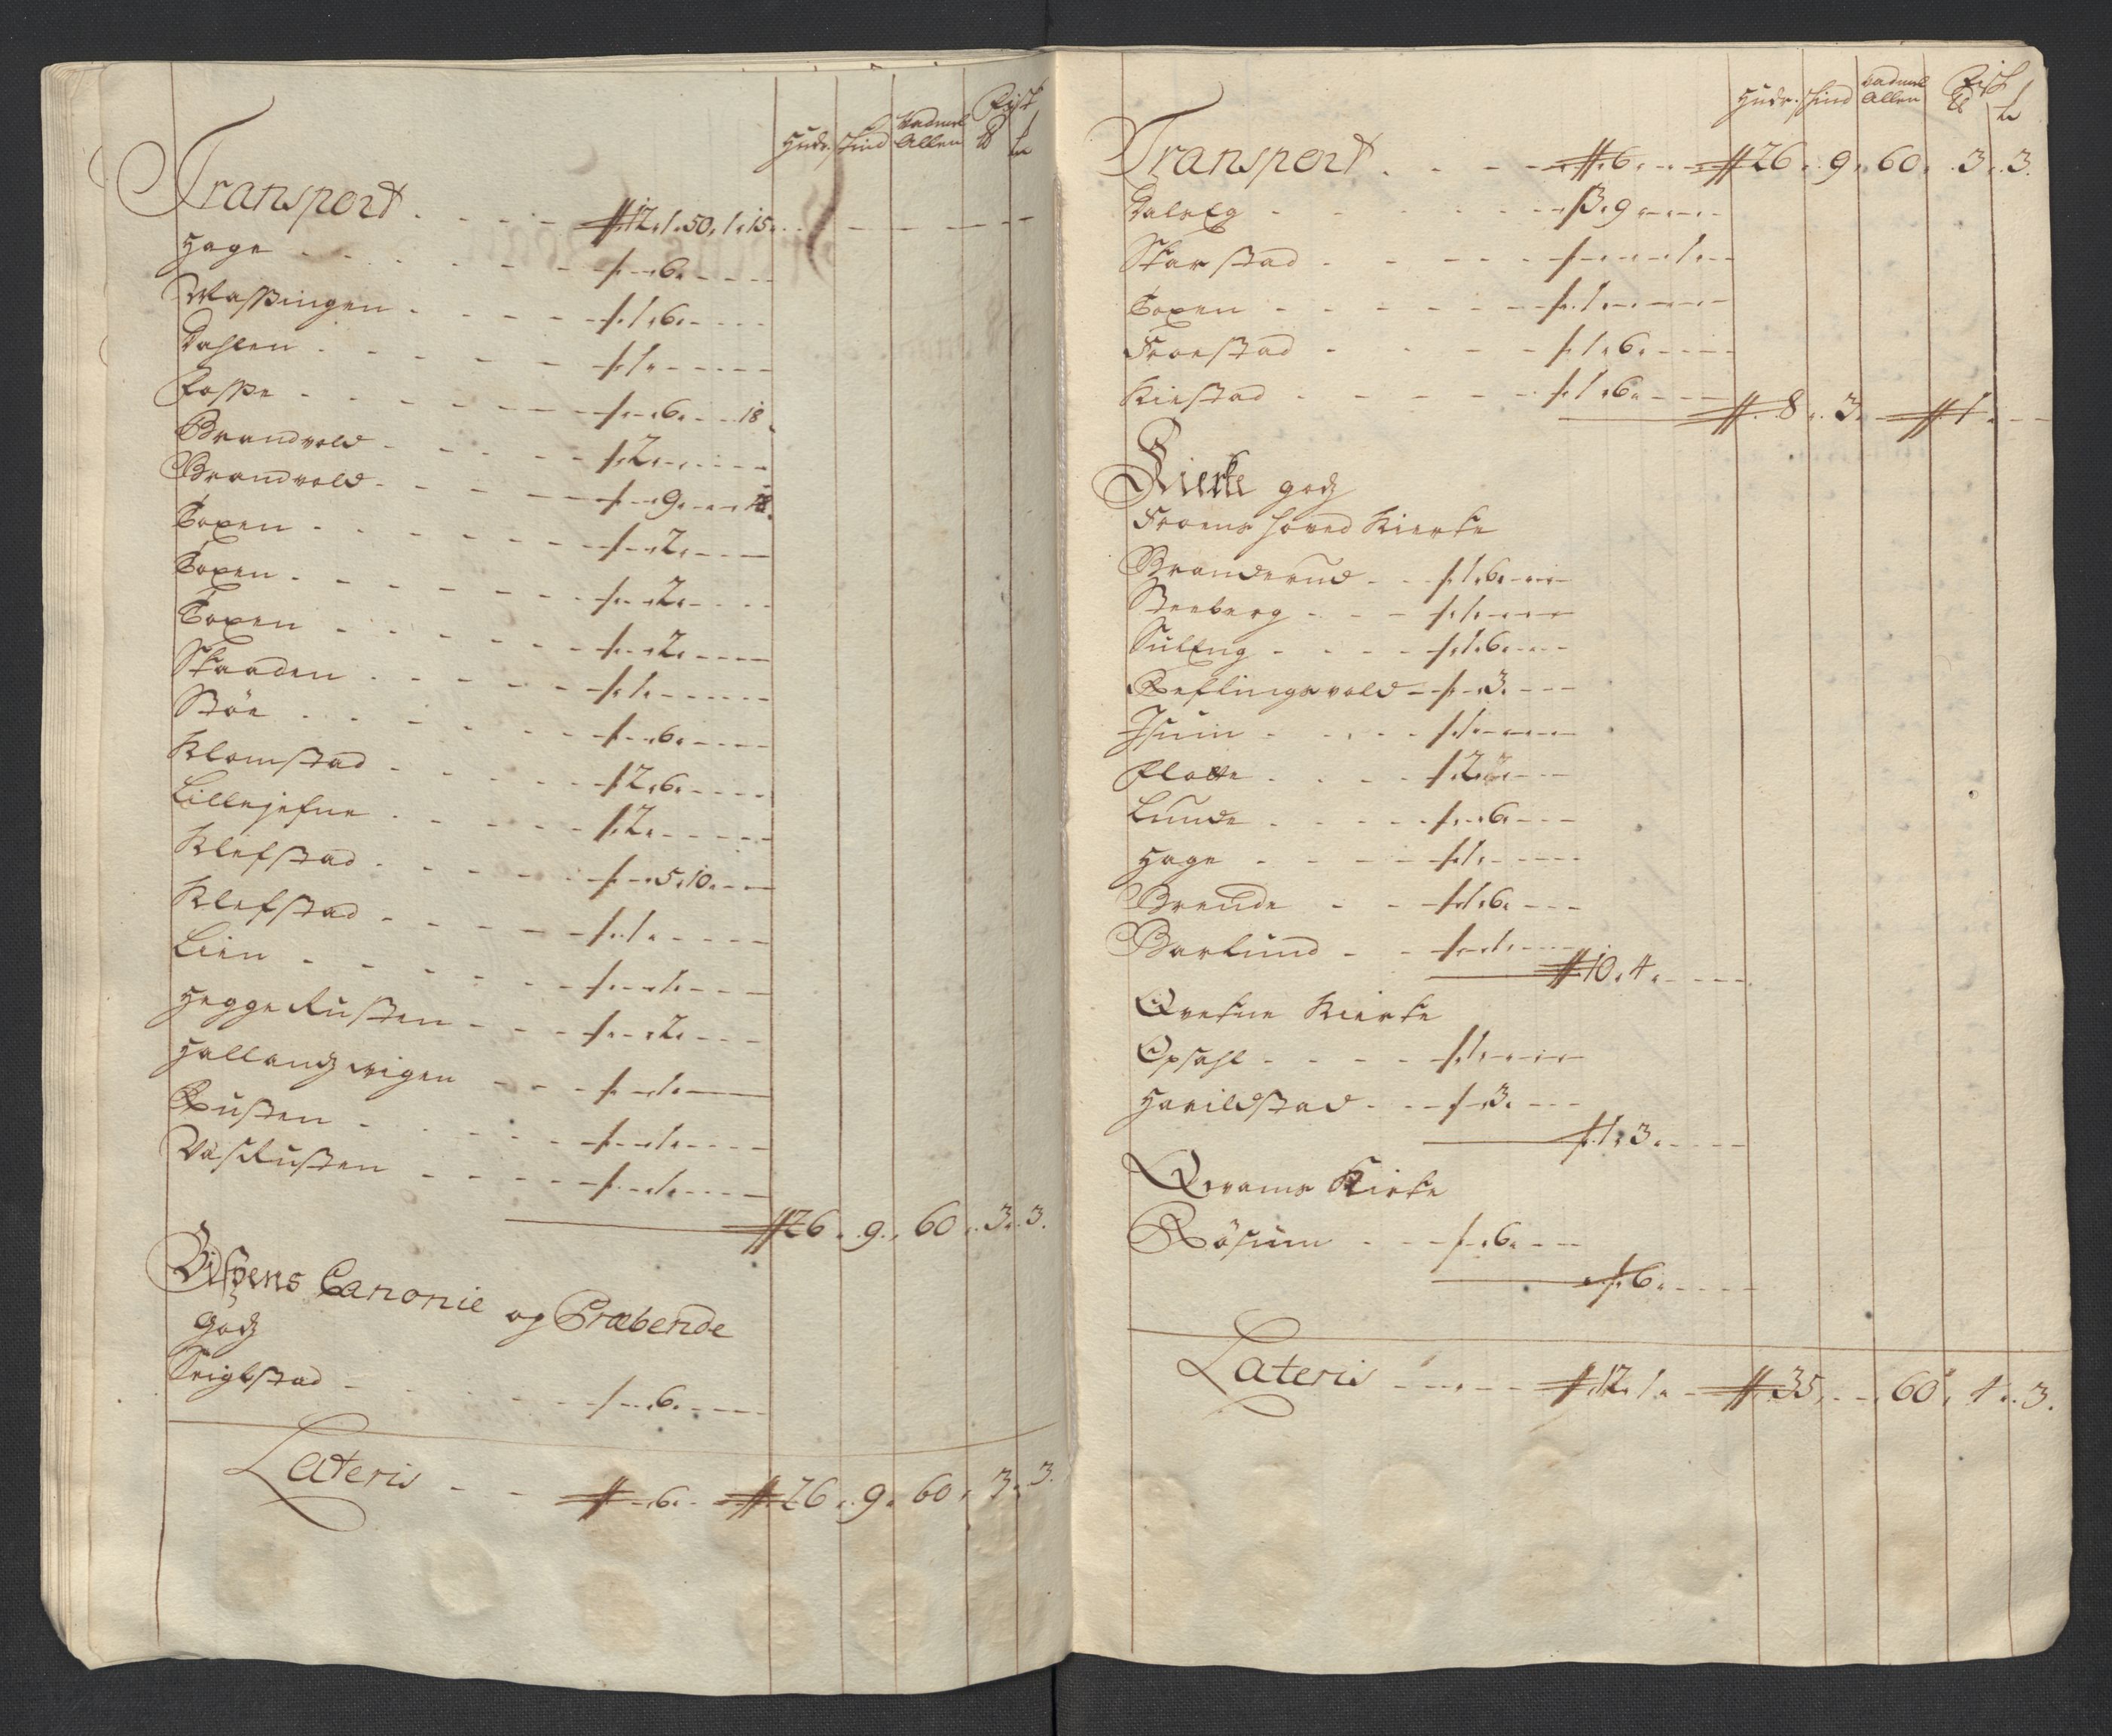 Hudr. skind Vadmel Allen Fisk
Transport . . . . 12. 1. 50. 1. 15.
Hage . . . 6.
Massingen . . . 1. 6.
Dahlen . . . 1.
Fosse . . . 6. 18
Brandvold . . . 2.
Brandvold . . . 9.
Toxen . . . 2.
Toxen . . . 2.
Toxen . . . 2.
Skaaden . . . 1.
Støe . . . 6.
Klomstad . . . 2. 6.
Lillejefne . . . 2.
Klefstad . . . 5. 10.
Klefstad . . . 1.
Lien . . . 1.
Hegge Rusten . . . 2.
Hallandzvigen . . . 1.
Rusten . . . 1.
Rusten . . . 1.
26. 9. 60. 3. 3.
Bispens Canonie og Præbende
Godz
Seigelstad . . . 6.
Lateris . . . 6. 26. 9. 60. 3. 3.
Hudr. skind Vadmel Allen Fisk
Transport . . . 6. 26. 9. 60. 3. 3.
Dalseg . . . 3. 9
Skarstad . . . 1.
Toxen . . . 1.
Froestad . . . 1. 6.
Kiestad . . . 1. 6.
8. 3. 1.
Kierke godz
Froens hoved Kierke
Branderud . . . 1. 6.
Steeberg . . . 1.
Sulleng . . . 1. 6.
Reflingsvold . . . 3.
Isum . . . 1.
Flotte . . . 2.
Lunde . . . 6.
Hage . . . 1.
Brende . . . 1. 6.
Barlund . . . 1.
10. 4.
Qvefne Kierke
Opsahl . . . 1.
Harildstad . . . 3.
1. 3.
Qvams Kirke
Røsum . . . 6.
6.
Lateris . . . 12. 1. 35. 60. 4. 3.